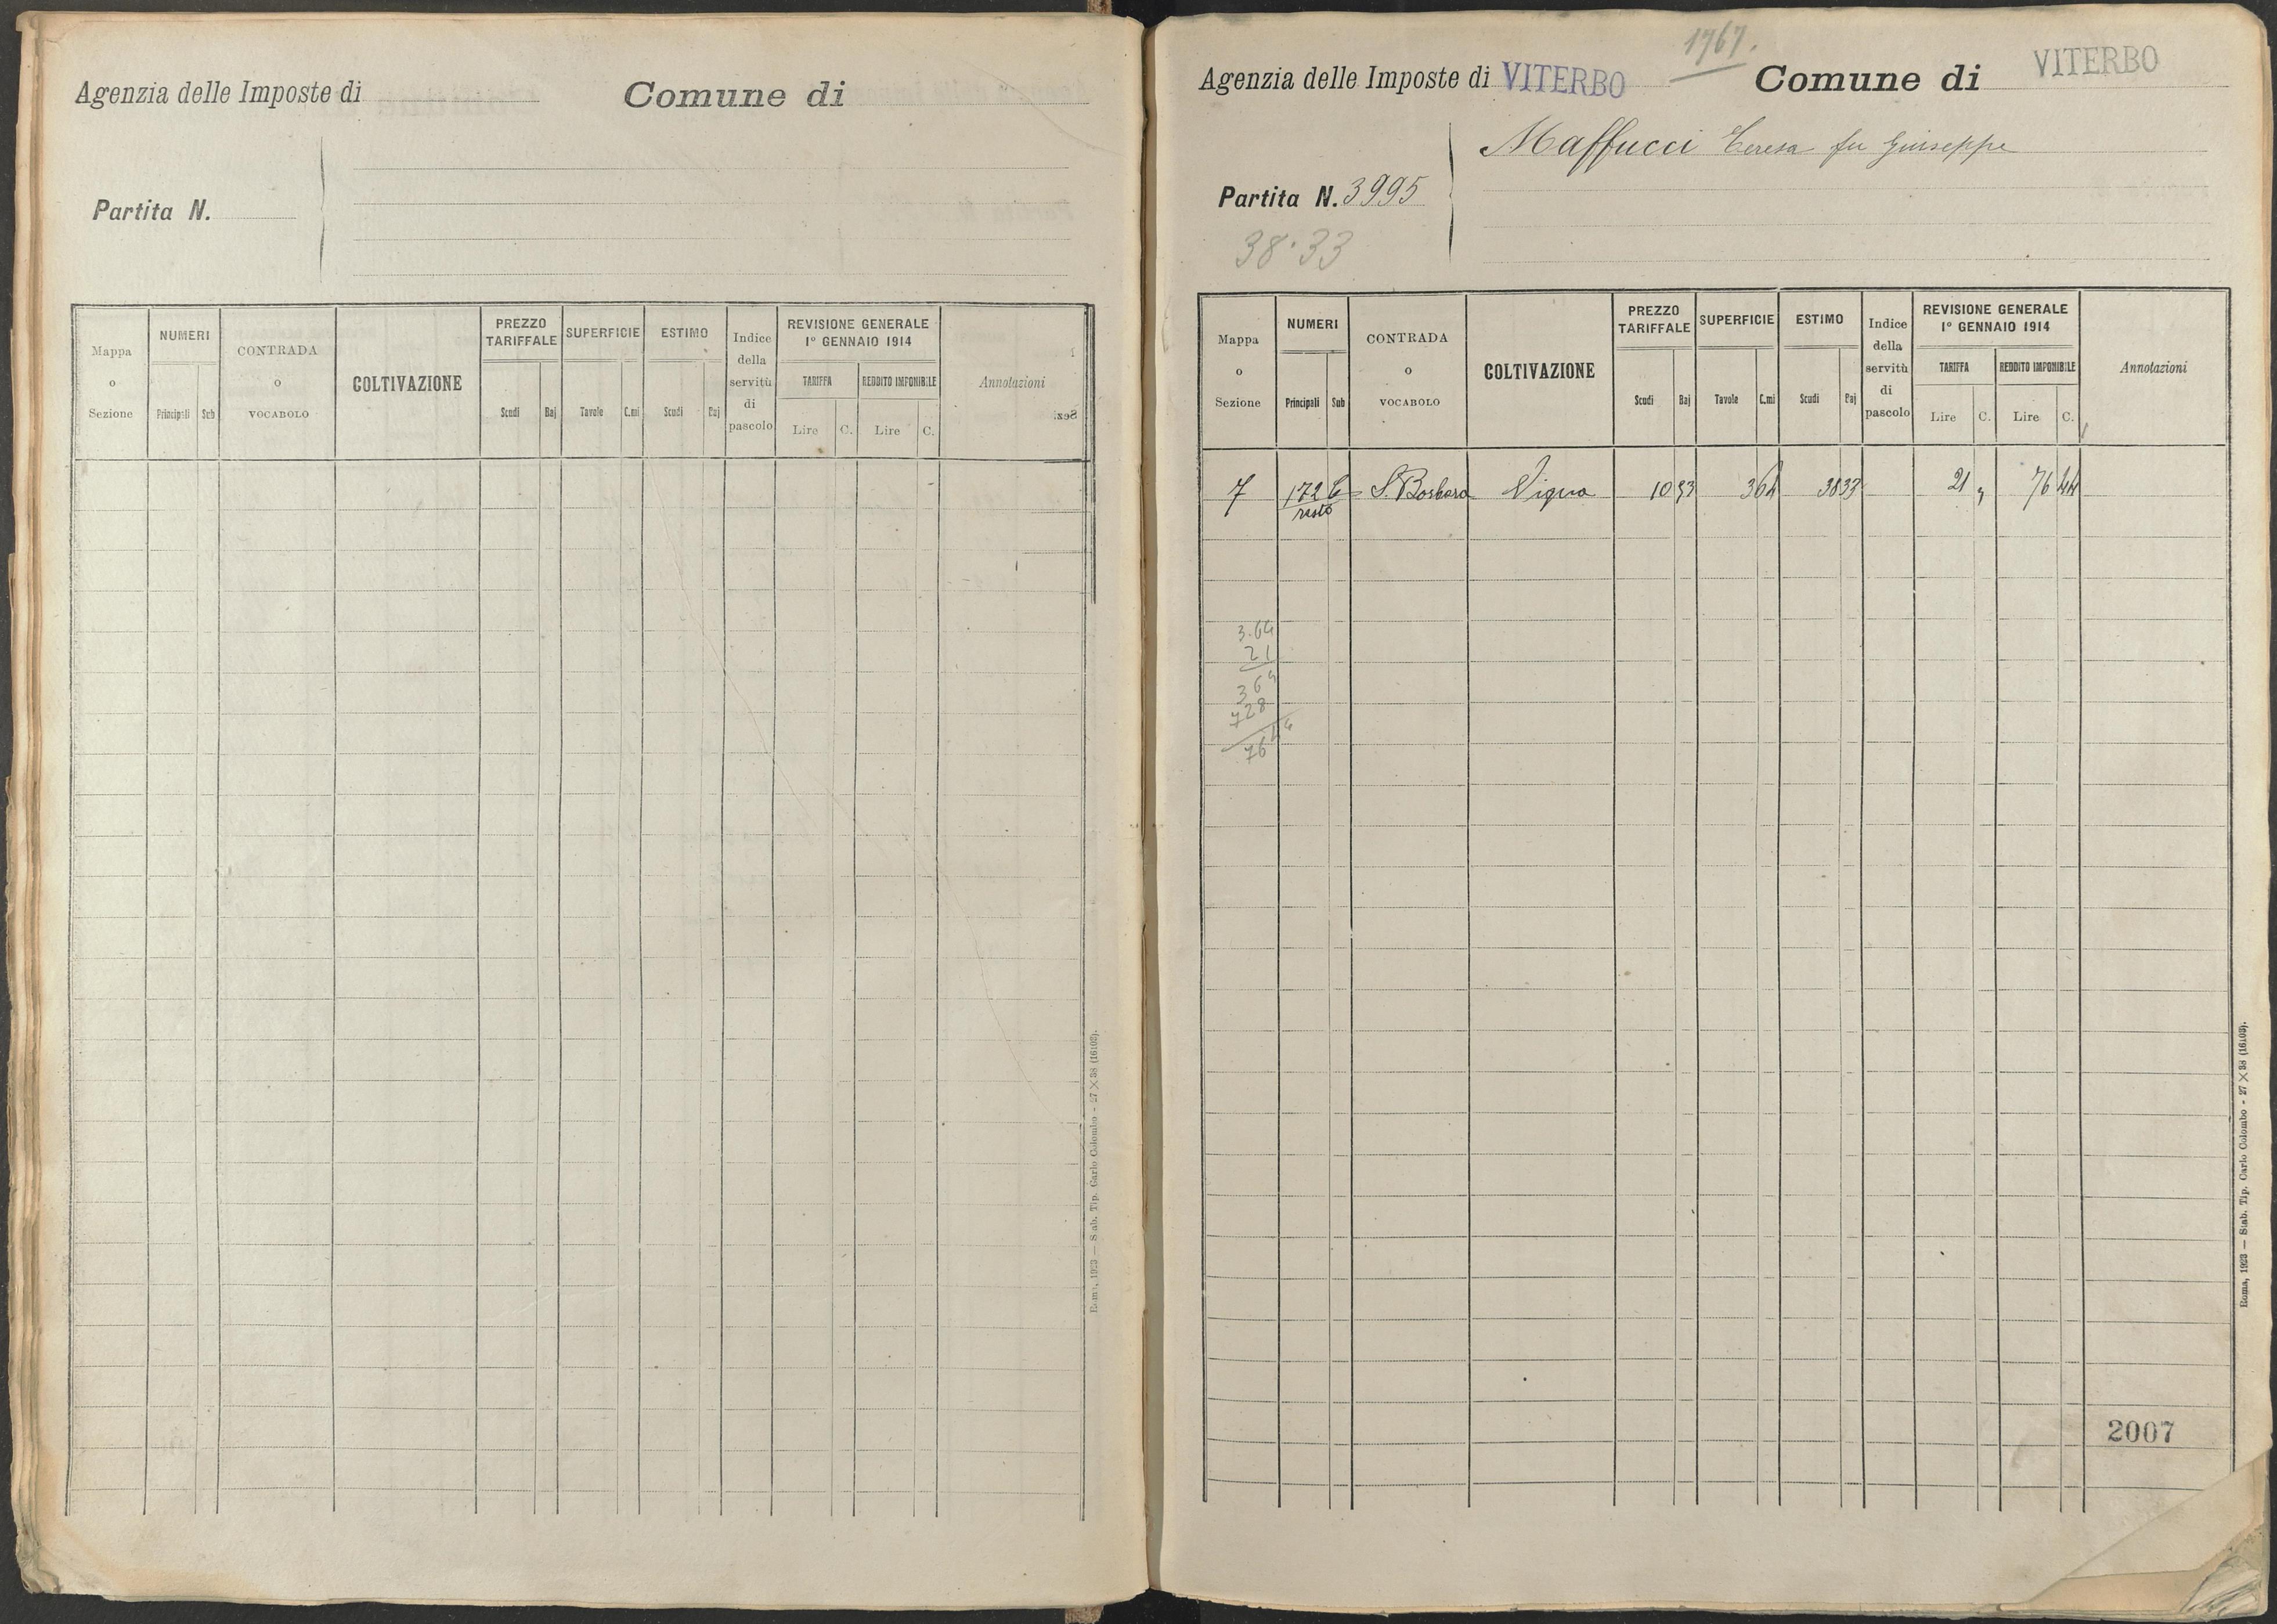 Agenzia delle Imposte di
Comune di
Partita N.
Mappa o Sezione
NUMERI
Principali Sub
CONTRADA o VOCABOLO
COLTIVAZIONE
PREZZO TARIFFALE
Scudi Baj
SUPERFICIE
Tavole C.mi
ESTIMO
Scudi Baj
Indice della servitù di pascolo
REVISIONE GENERALE
1° GENNAIO 1914
TARIFFA
Lire C.
REDDITO IMPONIBILE
Lire C.
Annotazioni
Roma, 1923 — Stab. Tip. Carlo Colombo - 27 X 38 (16103).
1767.
Agenzia delle Imposte di VITERBO
Comune di VITERBO
Maffucci Teresa fu Giuseppe
Partita N. 3995
38.33
Mappa o Sezione
NUMERI
Principali Sub
CONTRADA o VOCABOLO
COLTIVAZIONE
PREZZO TARIFFALE
Scudi Baj
SUPERFICIE
Tavole C.mi
ESTIMO
Scudi Baj
Indice della servitù di pascolo
REVISIONE GENERALE
1° GENNAIO 1914
TARIFFA
Lire C.
REDDITO IMPONIBILE
Lire C.
Annotazioni
7 172 S. Barbara Vigna 10 53 3 64 38 33 21 " 76 44
resto
3.64
21
364
728
7644
2007
Roma, 1923 — Stab. Tip. Carlo Colombo - 27 X 38 (16103).